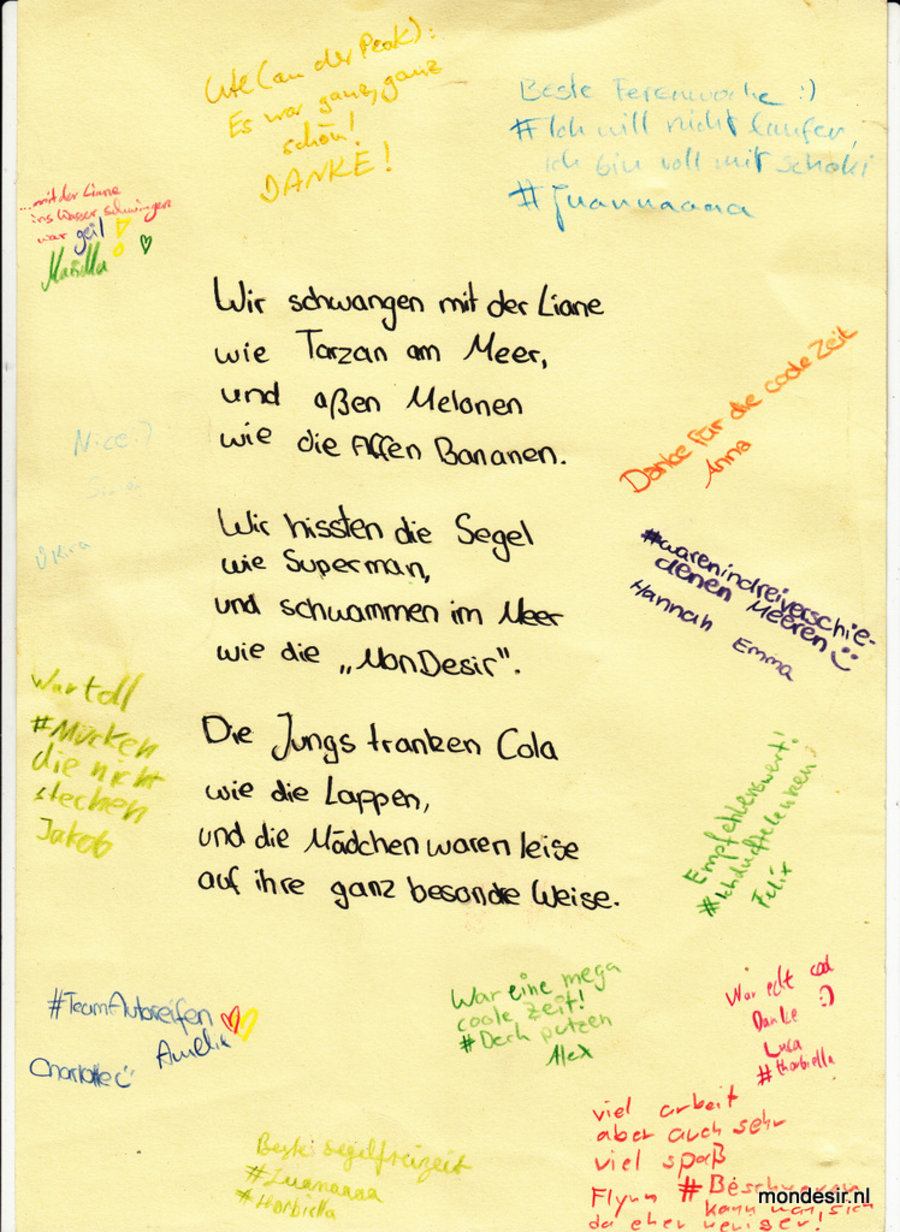 Ute (an der Peak):
Es war ganz, ganz
schön!
DANKE!
Beste Ferienwoche :)
#Ich will nicht laufen,
ich bin voll mit Schoki
#Juannaaaa
...mit der Liane
ins Wasser schwingen
war geil!
Wir schwangen mit der Liane
wie Tarzan am Meer,
und aßen Melonen
wie die Affen Bananen.
Danke für die coole Zeit
Anna
Nice :)
Kira
Wir hissten die Segel
wie Superman,
und schwammen im Meer
wie die „MonDesir".
#warenindreiverschie-
denen Meeren
Hannah Emma
War toll
#Mücken
die nicht
stechen
Jakob
Die Jungs tranken Cola
wie die Lappen,
und die Mädchen waren leise
auf ihre ganz besondre Weise.
Empfehlenswert!
#Ichdurftelenken
Felix
#TeamAutoreifen
Amelie
Charlotte
War eine mega
coole Zeit!
#Deck putzen
Alex
War echt cool
Danke :)
Luca
#thorbiella
Beste Segelfreizeit
#Juanaaaa
#thorbiella
viel arbeit
aber auch sehr
viel spaß
Flynn #Beschweren
kann man sich
da eher weniger!
mondesir.nl